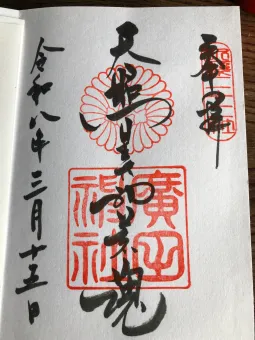 奉拝
天照大神荒魂
廣田
神社
令和八年三月十五日